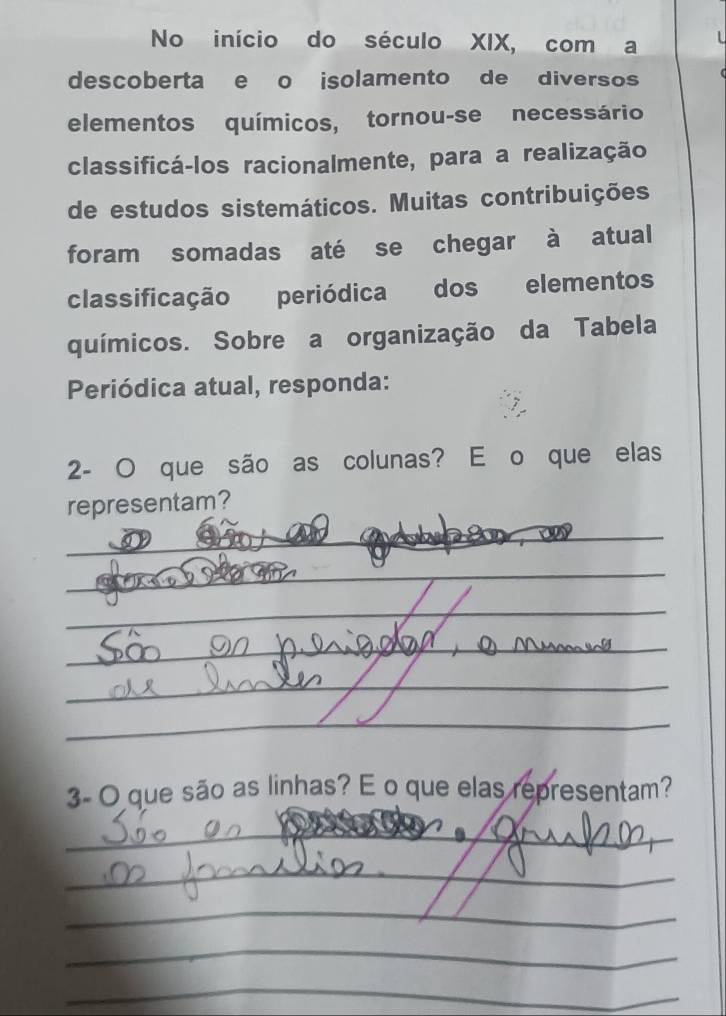 No início do século XIX, com a
descoberta e o isolamento de diversos
elementos químicos, tornou-se necessário
classificá-los racionalmente, para a realização
de estudos sistemáticos. Muitas contribuições
foram somadas até se chegar à atual
classificação periódica dos elementos
químicos. Sobre a organização da Tabela
Periódica atual, responda:
2- O que são as colunas? E o que elas
representam?
São os periodos, o numero
de
3- O que são as linhas? E o que elas representam?
São os grupos,
as familias.